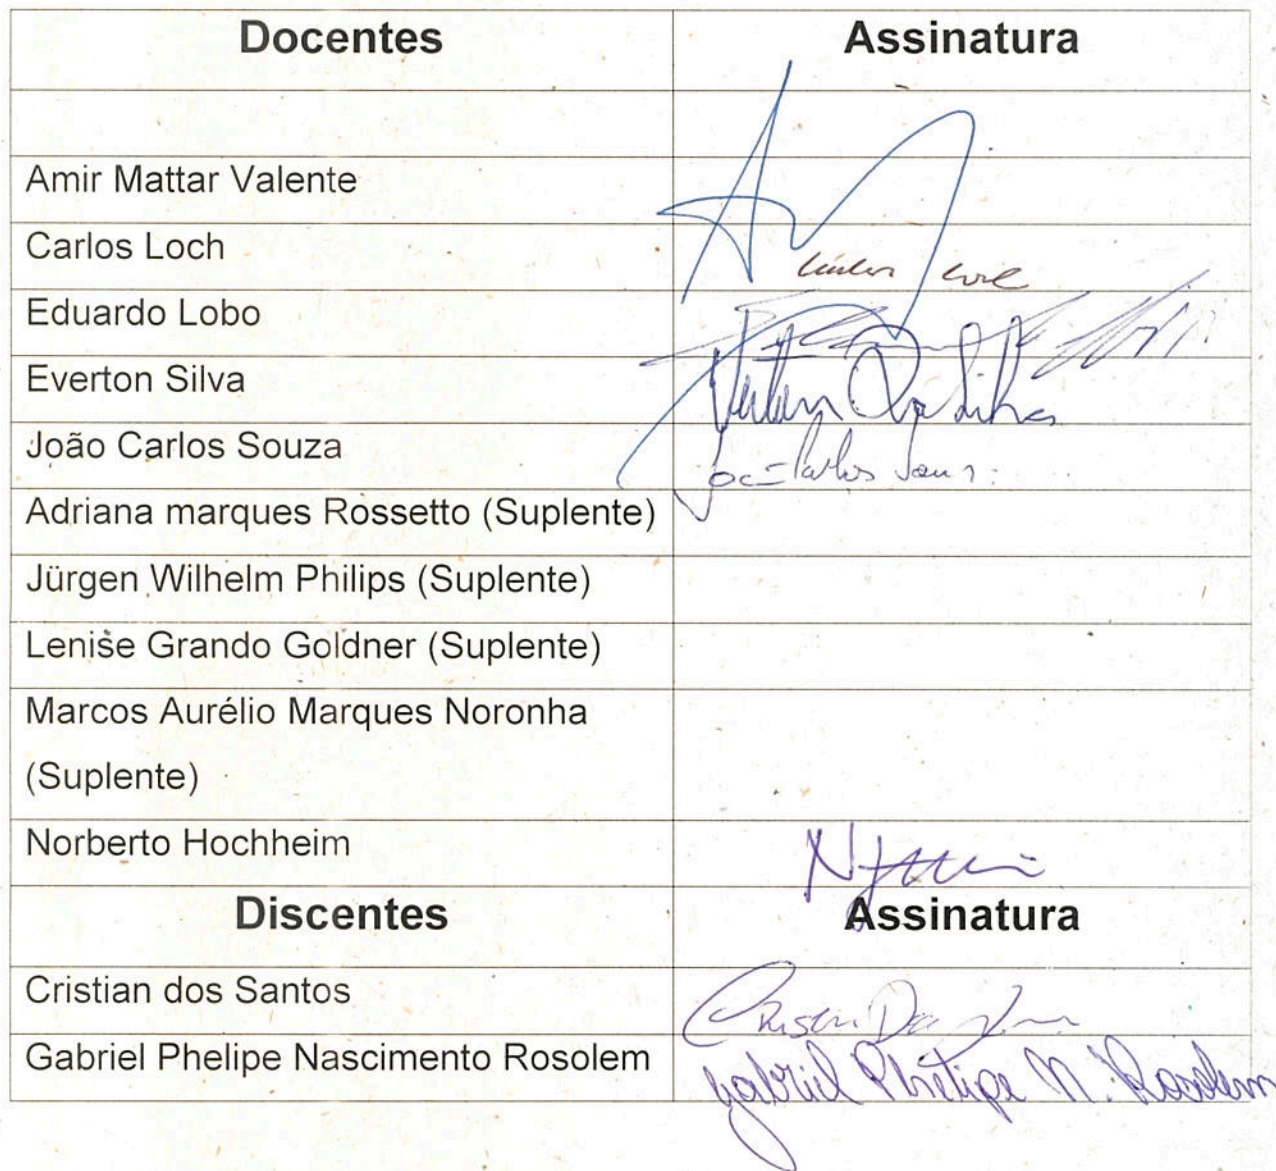 Docentes Assinatura
Amir Mattar Valente
Carlos Loch
Eduardo Lobo
Everton Silva
João Carlos Souza
Adriana marques Rossetto (Suplente)
Jürgen Wilhelm Philips (Suplente)
Lenise Grando Goldner (Suplente)
Marcos Aurélio Marques Noronha
(Suplente)
Norberto Hochheim
Discentes Assinatura
Cristian dos Santos
Gabriel Phelipe Nascimento Rosolem Gabriel Phelipe N. Rosolem